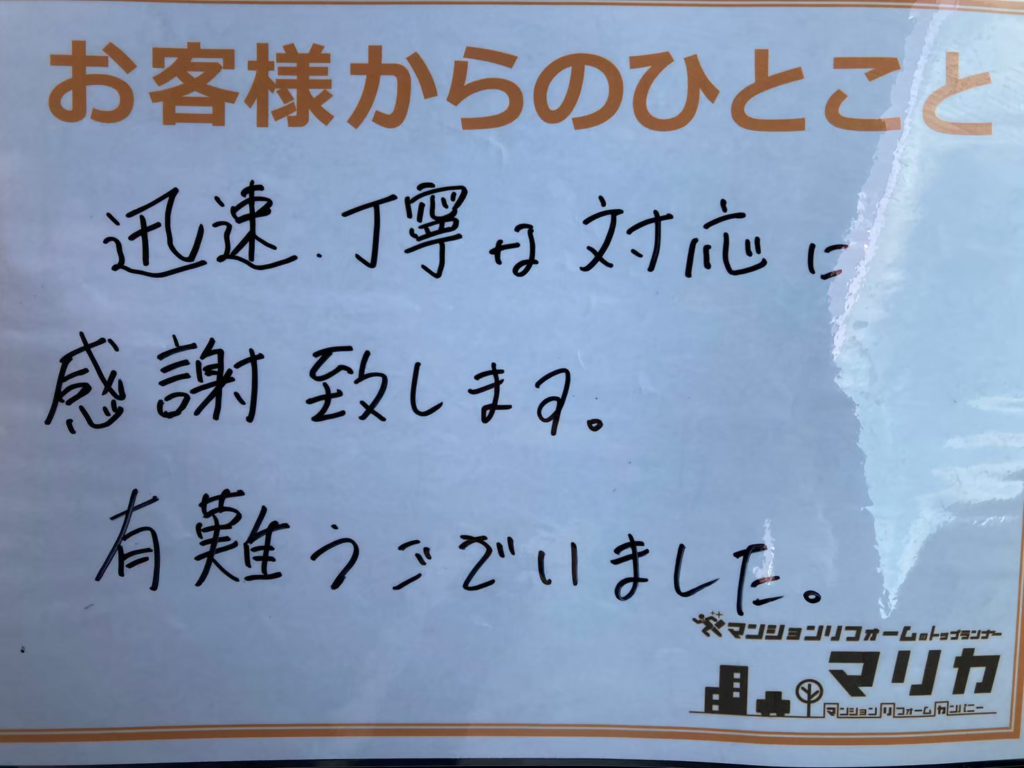 お客様からのひとこと
迅速.丁寧な対応に
感謝致します。
有難うございました。
マンションリフォームのトップランナー
マリカ
マンションリフォームカンパニー